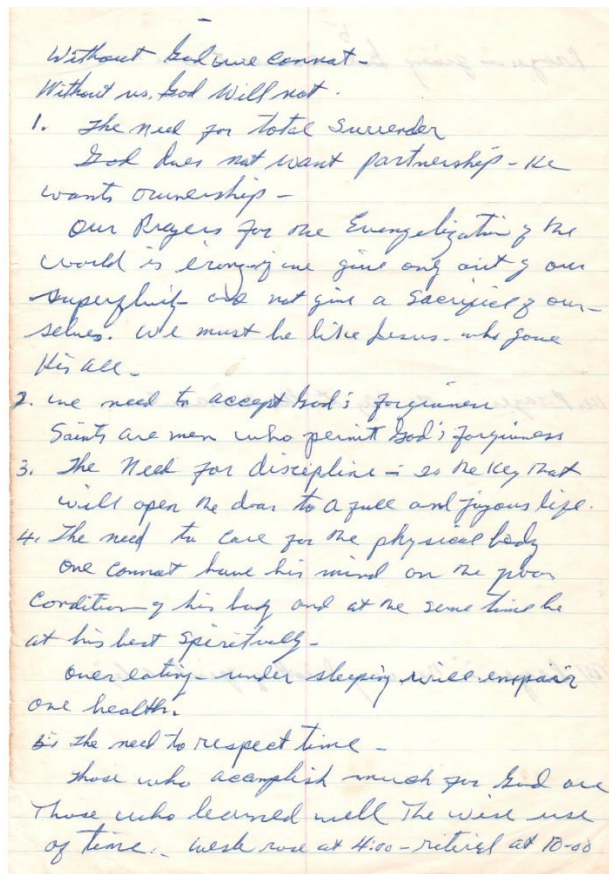 5
Without God we cannot -
Without us, God Will not.
1. The need for total Surrender
God does not want partnership - He
wants ownership -
Our Prayers for the Evangelization of the
world is irony if we give only out of our
superfluity and not give a Sacrifice of our-
selves. We must be like Jesus - who gave
His all -
2. we need to accept God's forgiveness
Saints are men who permit God's forgiveness
3. The Need for discipline - is the key that
will open the door to a full and joyous life.
4. The need to care for the physical body
One cannot have his mind on the poor
condition of his body and at the same time be
at his best spiritually -
over eating - under sleeping will empair
one health.
5. The need to respect time -
Those who accomplish much for God are
Those who learned well The wise use
of time. - rose at 4:00 - retired at 10-00